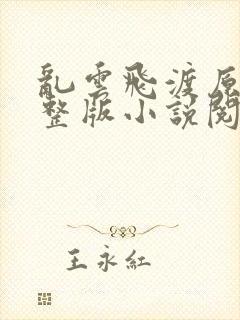 亂雲飛渡原
整版小說閱
王永紅